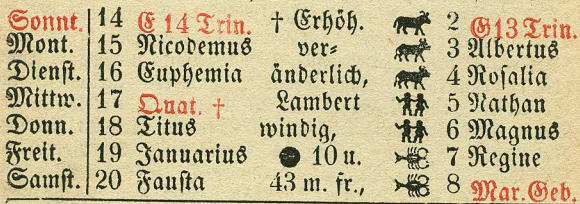 Sonnt. 14 E 14 Trin. † Erhöh. 2 G13 Trin.
Mont. 15 Nicodemus ver- 3 Albertus
Dienst. 16 Euphemia änderlich, 4 Rosalia
Mittw. 17 Quat. † Lambert 5 Nathan
Donn. 18 Titus windig, 6 Magnus
Freit. 19 Januarius ● 10 u. 7 Regine
Samst. 20 Fausta 43 m. fr., 8 Mar. Geb.